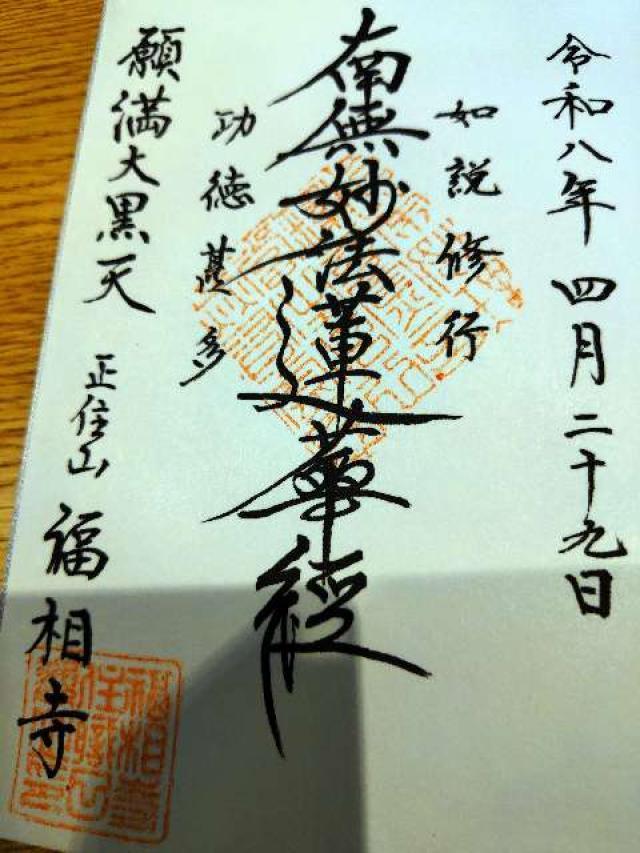 令和八年四月二十九日
如説修行
南無妙法蓮華経
功徳甚多
願満大黒天
正住山 福相寺